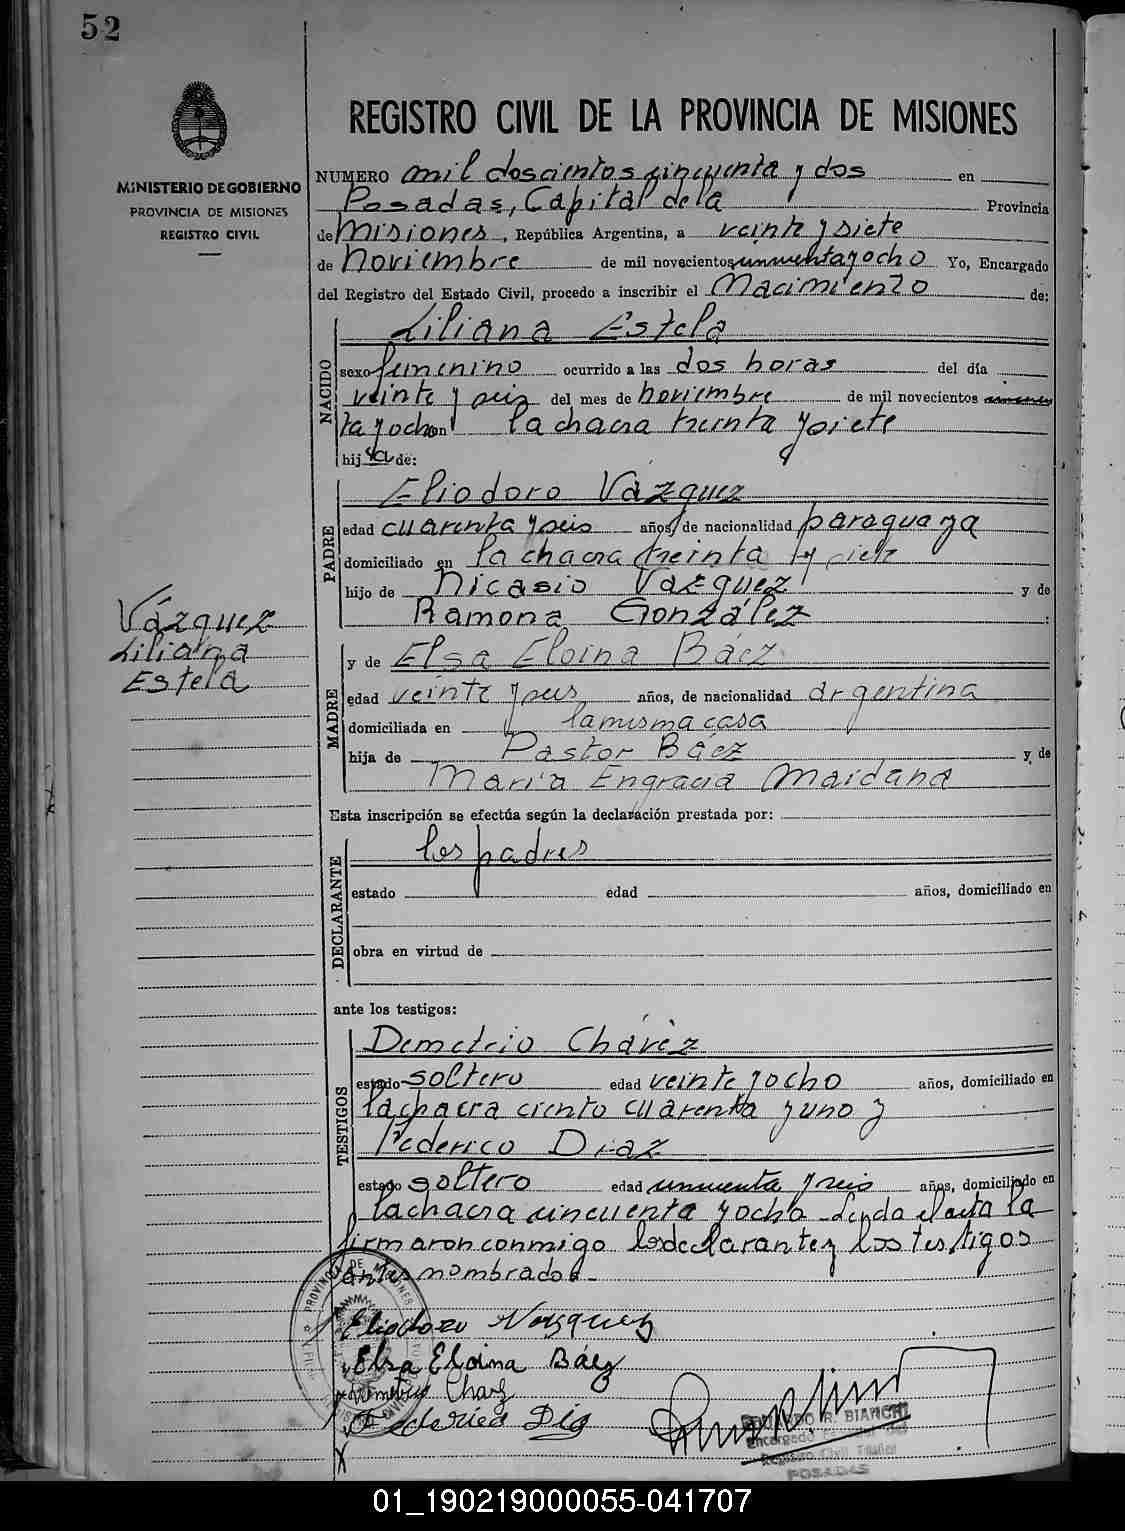 52
MINISTERIO DE GOBIERNO
PROVINCIA DE MISIONES
REGISTRO CIVIL
REGISTRO CIVIL DE LA PROVINCIA DE MISIONES
NUMERO mil doscientos cincuenta y dos en
Posadas, Capital de la Provincia
de Misiones, República Argentina, a veinte y siete
de noviembre de mil novecientos cincuenta y ocho Yo, Encargado
del Registro del Estado Civil, procedo a inscribir el Nacimiento de:
NACIDO
Liliana Estela
sexo femenino ocurrido a las dos horas del día
veinte y seis del mes de noviembre de mil novecientos cincuen
ta y ocho en la chacra treinta y siete
hija de:
PADRE
Eliodoro Vázquez
edad cuarenta y seis años, de nacionalidad paraguaya
domiciliado en la chacra treinta y siete
hijo de Nicasio Vazquez y de
Ramona González
Vázquez
Liliana
Estela
MADRE
y de Elsa Eloina Báez
edad veinte y seis años, de nacionalidad argentina
domiciliada en la misma casa
hija de Pastor Báez y de
María Engracia Maidana
Esta inscripción se efectúa según la declaración prestada por:
DECLARANTE
los padres
estado edad años, domiciliado en
obra en virtud de
ante los testigos:
TESTIGOS
Demetrio Chávez
estado soltero edad veinte y ocho años, domiciliado en
la chacra ciento cuarenta y uno y
Federico Diaz
estado soltero edad cincuenta y seis años, domiciliado en
la chacra cincuenta y ocho. Leida el acta la
firmaron conmigo los declarantes y los testigos
antes nombrados.
Eliodoro Vazquez
Elsa Eloina Báez
EDUARDO R. BIANCHI
Encargado
Registro Civil
POSADAS
01_190219000055-041707